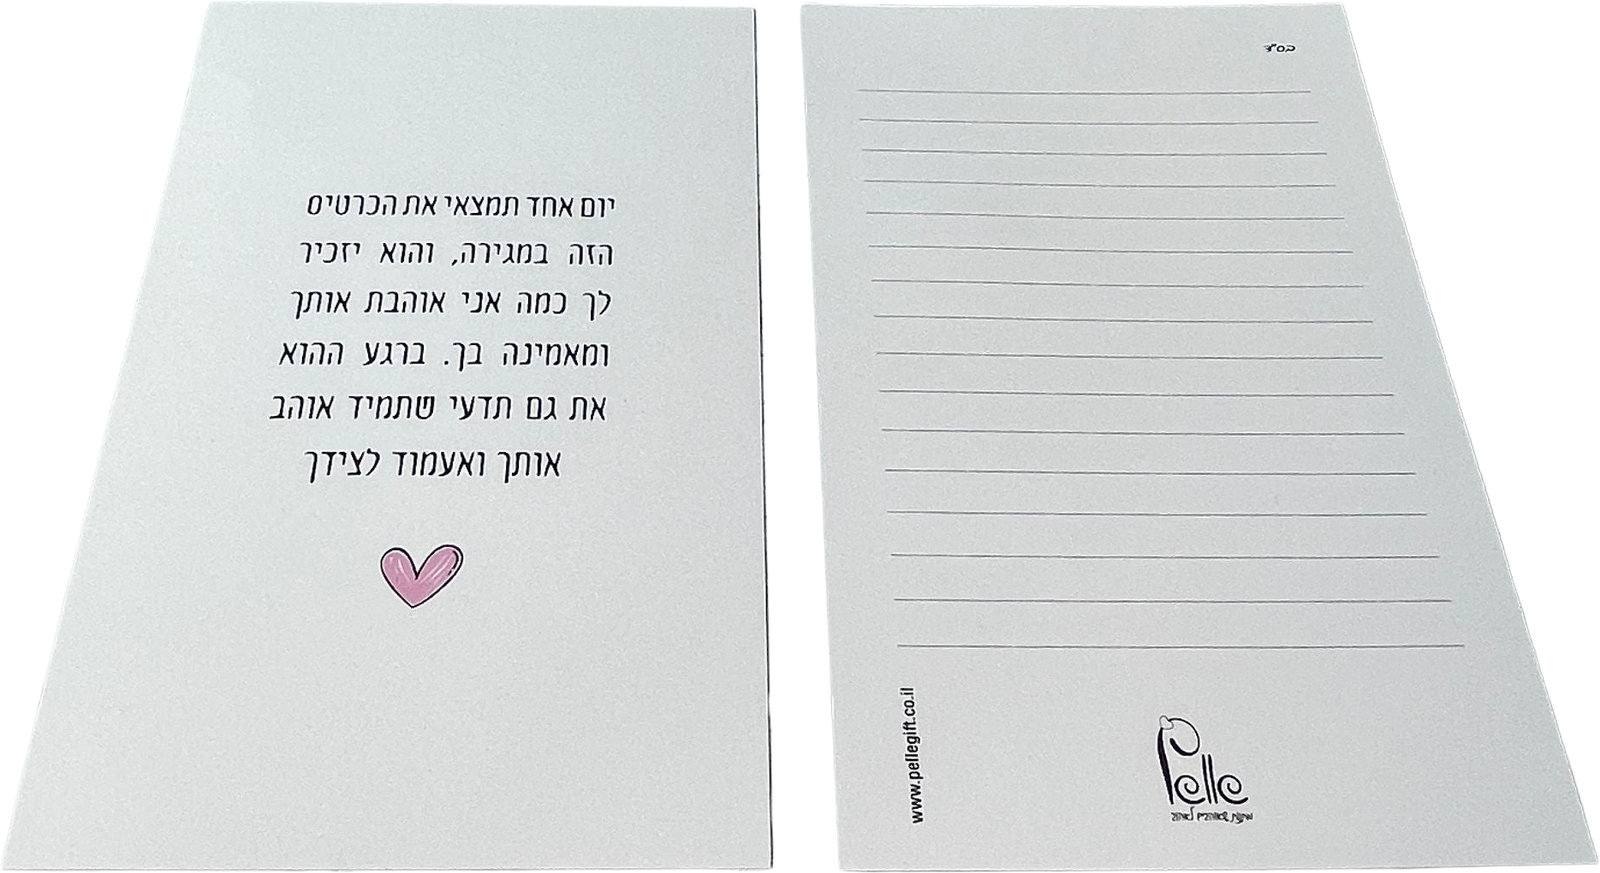 יום אחד תמצאי את הכרטיס
הזה במגירה, והוא יזכיר
לך כמה אני אוהבת אותך
ומאמינה בך. ברגע ההוא
את גם תדעי שתמיד אוהב
אותך ואעמוד לצידך
בס"ד
www.pellegift.co.il
Pelle